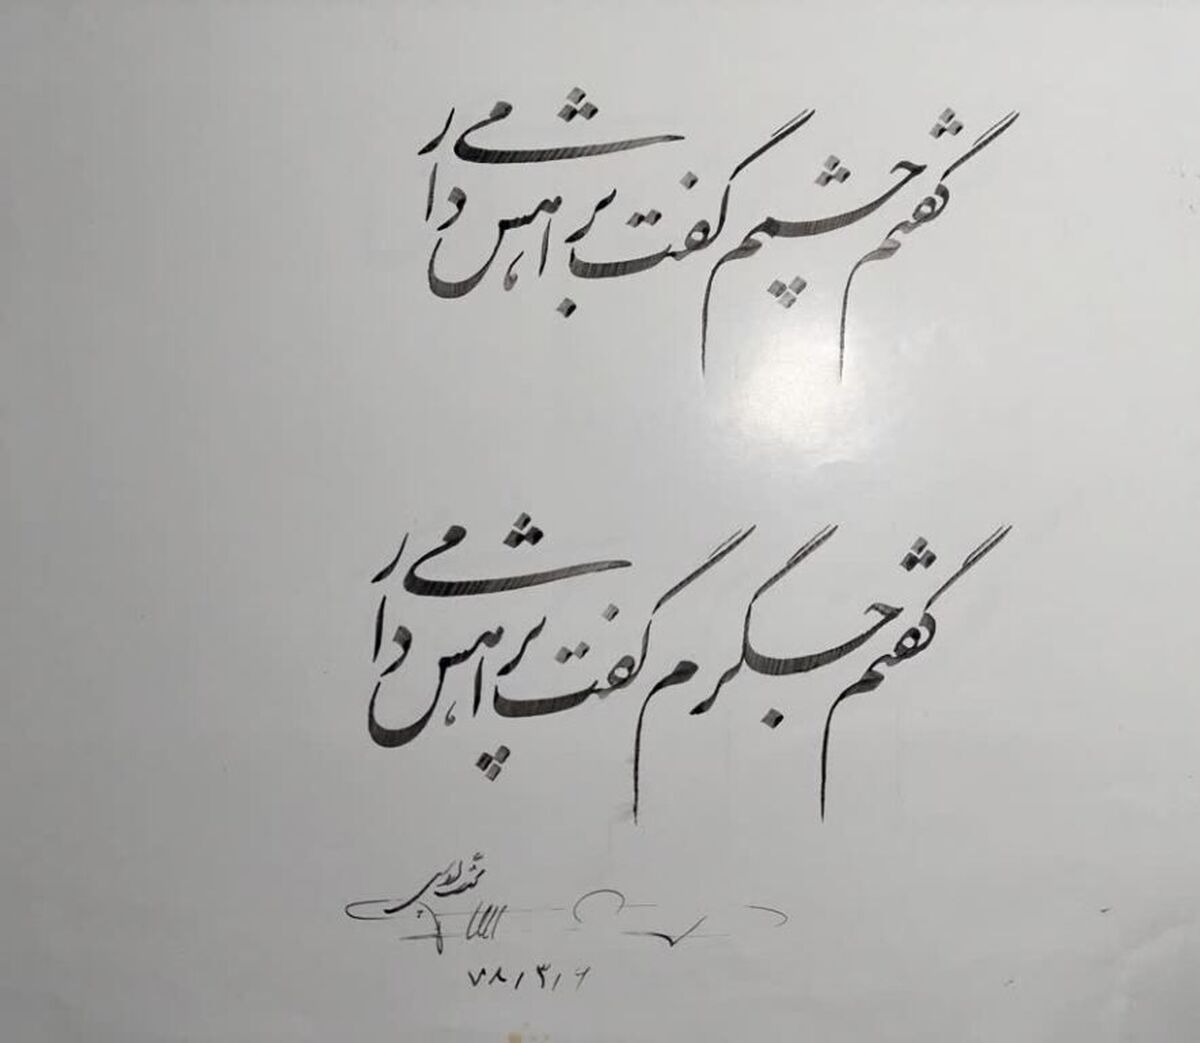 گفتم چشمم گفت براهش می دار
گفتم جگرم گفت پر آهش می دار
۷۸/۳/۶